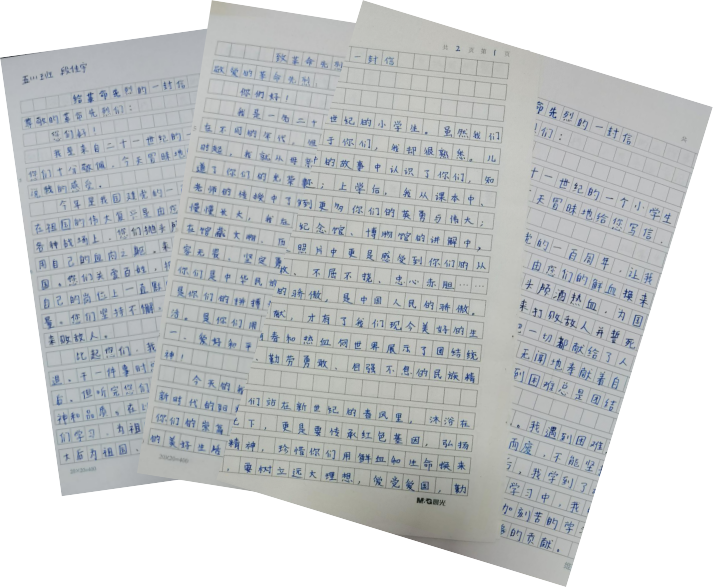 五(1)班 段佳宇
给革命先烈的一封信
尊敬的革命先烈们:
你们好!
我是来自二十一世纪的一
你们十分敬佩,今天冒昧地
说我的感受。
今年是我国建党的一
在祖国的伟大复兴是由您
各种战场上,您们抛头颅
用自己的血肉之躯,来
国。您们关爱百姓,
自己的岗位上一直默
量。您们坚持不懈,
来敌人。
比起您们,我
道。于一件事时
自。但听完您们
神和品质。在
们学习,为祖
大后为祖国,
20×20=400
致革命先烈
敬爱的革命先烈
你们好!
我是一名二十
在不同的年代,但
时起,我就从母亲
道了你们的光荣
老师的传授中了
慢慢长大,我在
在馆藏文物、历
容无畏、坚定勇
你们是中华民族
是你们的拼搏
活。是你们用
一、爱好和平
神!
今天的我
新时代的阳
你们的荣誉
的美好生活
20×20=400
共 2 页 第 1 页
一封信
世纪的小学生。虽然我们
于你们,我却很熟悉。儿
的故事中认识了你们,知
;上学后,我从课本中、
到更多你们的英勇与伟大;
纪念馆、博物馆的讲解中,
照片中更是感受到你们的从
敢、不屈不挠,忠心赤胆……
的骄傲,是中国人民的骄傲。
献,才有了我们现今美好的生
春和热血向世界展示了团结统
勤劳勇敢、自强不息的民族精
们站在新世纪的春风里,沐浴在
下,更是要传承红色基因,弘扬
精神,珍惜你们用鲜血和生命换来
,要树立远大理想,爱党爱国,勤
M&G晨光
命先烈的一封信
们:
十一世纪的一个小学生
天冒昧地给您写信,
党的一百周年,让我
由您们的鲜血换来
头颅洒热血,为国
来打败敌人并誓死
一切都献给了人
无闻地奉献着自
到困难总是团结
。我遇到困难
两度,不能坚
,我学到了
学习中,我
加刻苦的学
的贡献。